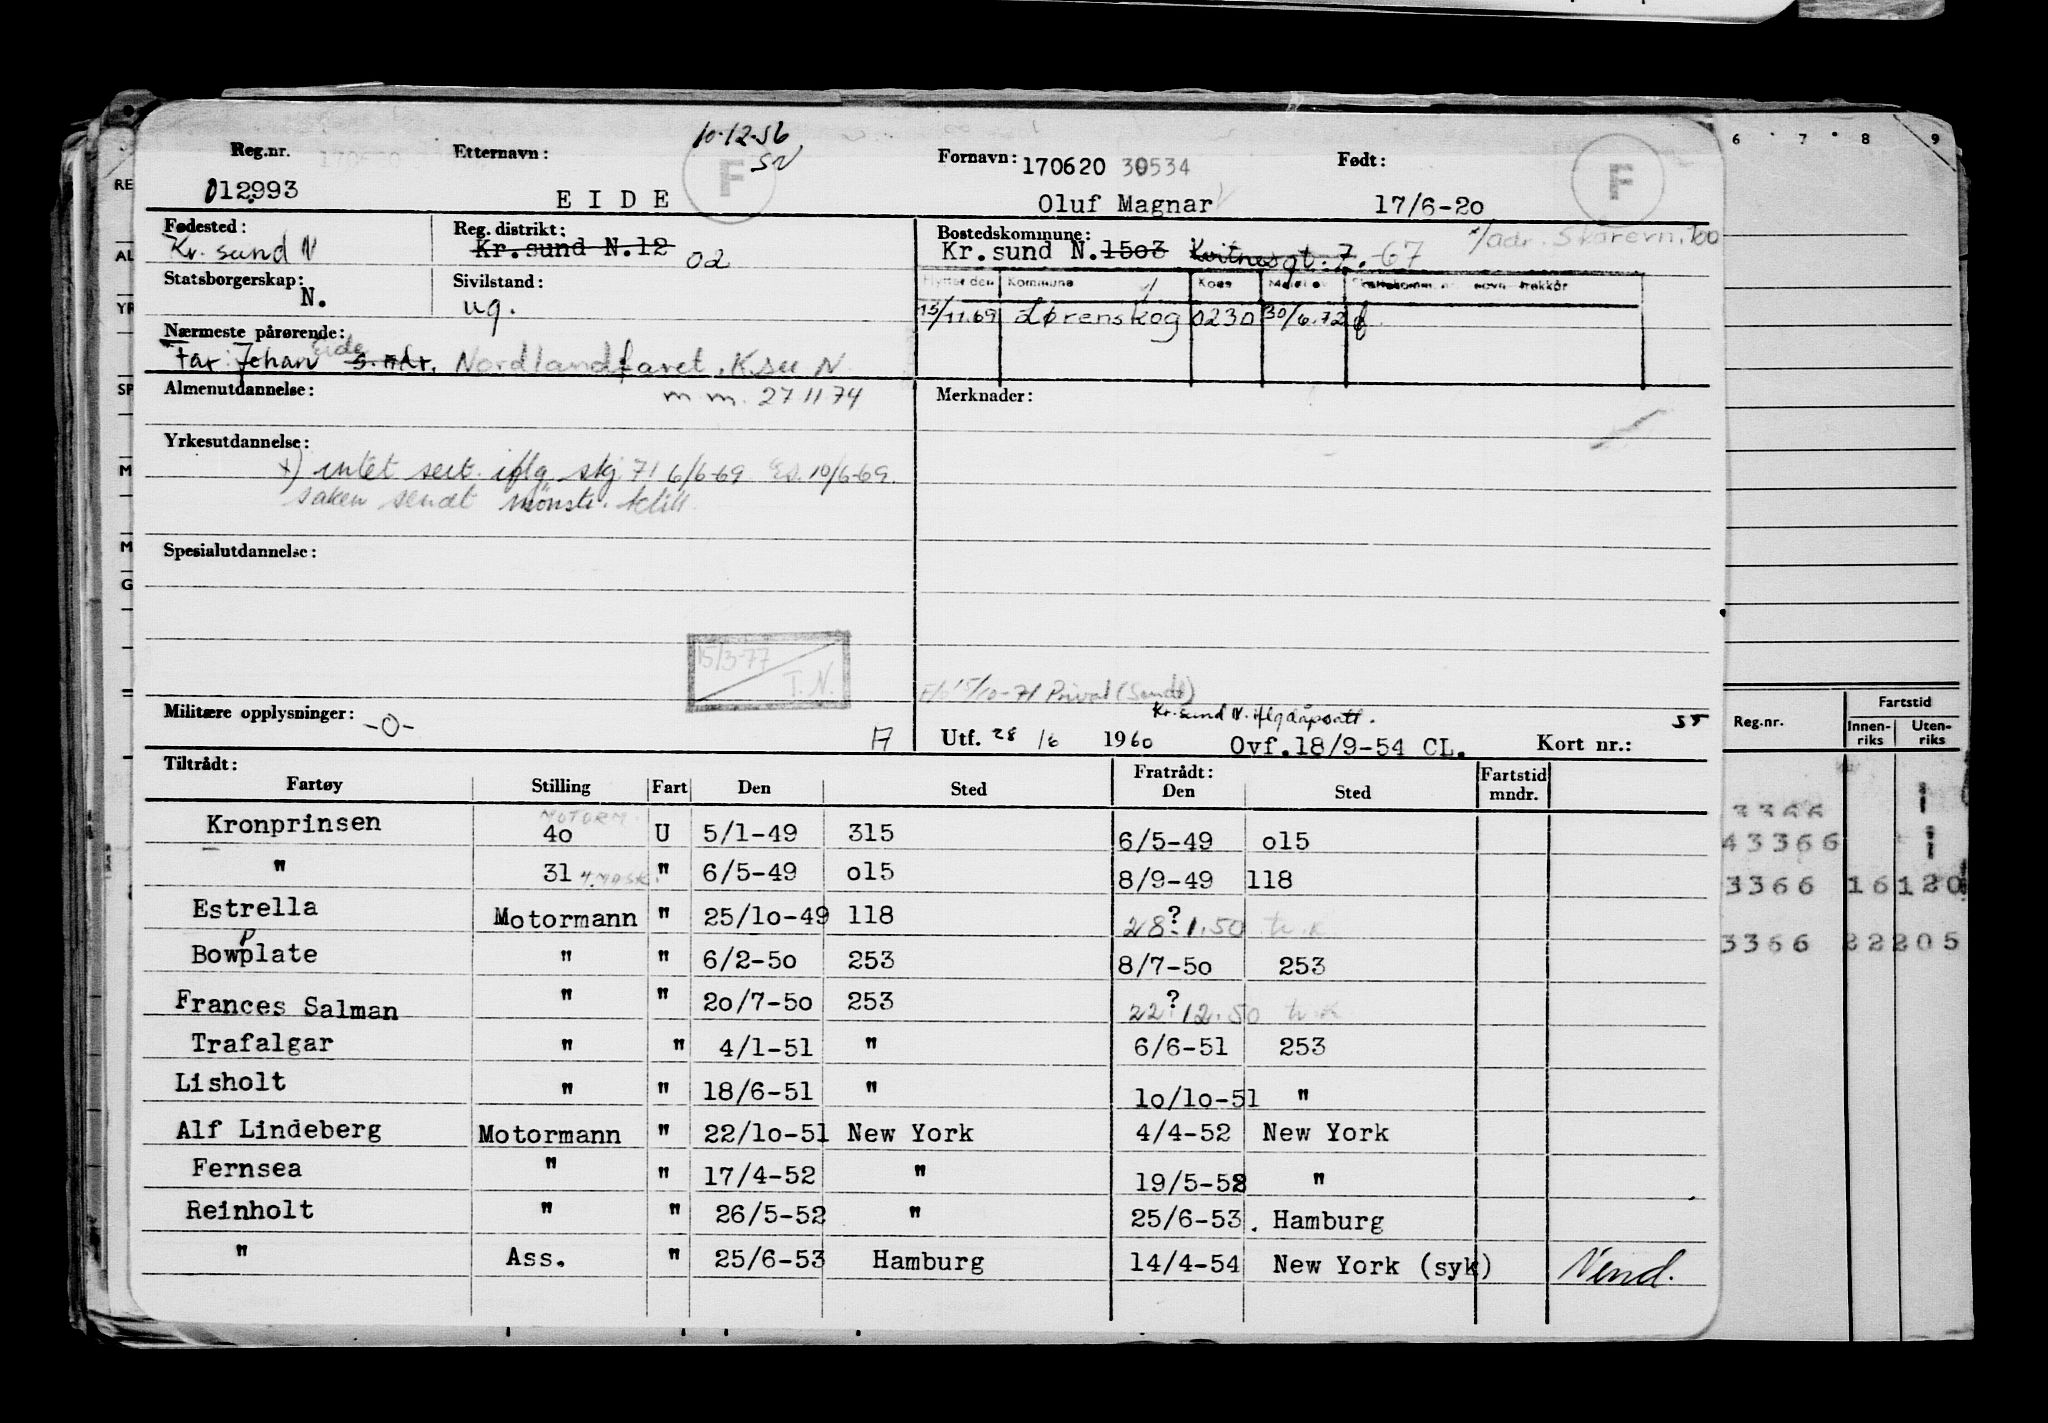 10-12-56
SN
Reg.nr. Etternavn: F Fornavn: 170620 30534 Født: F
012993 EIDE Oluf Magnar 17/6-20
Fødested: Reg. distrikt: Bostedskommune: x/adr. Skårevn. 100
Kr. sund N Kr.sund N.12 02 Kr.sund N. 1503 Kvitnesgt. 7. 67
Statsborgerskap: Sivilstand: Kommune
N. ug. 15/11.69 Lørenskog 0230 30/6.72
Nærmeste pårørende:
far: Johan Eide s. adr. Nordlandfaret. Ksu N
Almenutdannelse: m.m. 27 11 74 Merknader:
Yrkesutdannelse:
x) intet sert. iflg. skj 71 6/6-69 Es. 10/6-69.
saken sendt mønstr.
Spesialutdannelse:
15/3-77
T.N.
15/10-71 Privat (Sendt)
Militære opplysninger: -0- Kr.sund N. iflg dåpsatt. 55
Utf. 28/6 1960 Ovf.18/9-54 CL. Kort nr.:
Tiltrådt: Fratrådt: Fartstid
Fartøy Stilling Fart Den Sted Den Sted mndr.
MOTORM.
Kronprinsen 40 U 5/1-49 315 6/5-49 o15
" 31 " 6/5-49 o15 8/9-49 118
Estrella Motormann " 25/1o-49 118 28?1.50
Bowplate " " 6/2-5o 253 8/7-5o 253
Frances Salman " " 2o/7-5o 253 22?12.50
Trafalgar " " 4/1-51 " 6/6-51 253
Lisholt " " 18/6-51 " 1o/1o-51 "
Alf Lindeberg Motormann " 22/1o-51 New York 4/4-52 New York
Fernsea " " 17/4-52 " 19/5-52 "
Reinholt " " 26/5-52 " 25/6-53. Hamburg
" Ass. " 25/6-53 Hamburg 14/4-54 New York (syk) Vend.
6 7 8 9
RE
AL
YR
SP
M
M
G
Reg.nr. Fartstid
Innen-riks Uten-riks
3366 1
43366 1
3366 16 120
3366 22 205